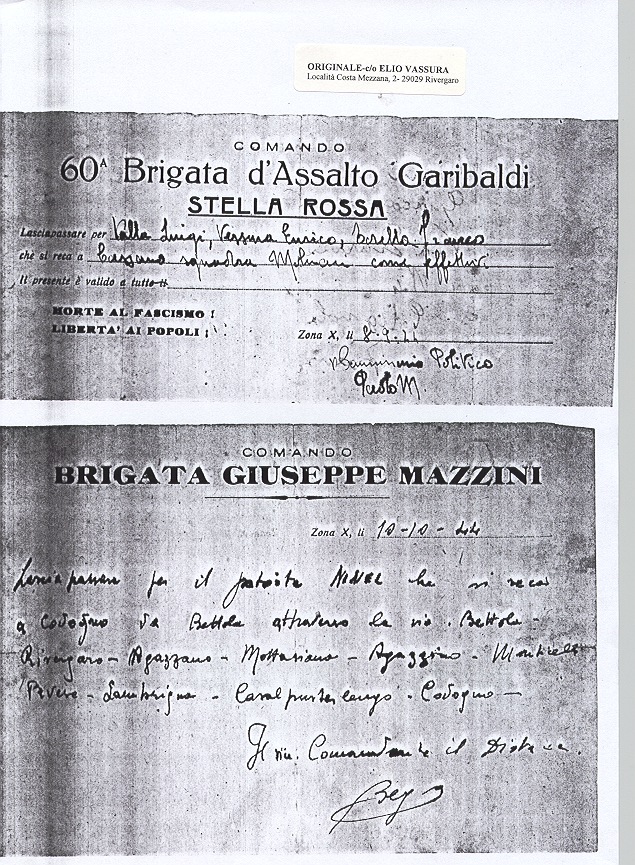 ORIGINALE-c/o ELIO VASSURA
Località Costa Mezzana, 2- 29029 Rivergaro
COMANDO
60ᴬ Brigata d'Assalto Garibaldi
STELLA ROSSA
Lasciapassare per Valla Luigi, Vassura Enrico, Franco
che si reca a squadra come effettivi
Il presente è valido a tutto il
MORTE AL FASCISMO !
LIBERTA' AI POPOLI !
Zona X, li 8-9-44
Il Commissario Politico
Paolo M.
COMANDO
BRIGATA GIUSEPPE MAZZINI
Zona X, li 10-10-44
Lascia passare per il patriota NINEL che si reca
a Codogno da Bettola attraverso la via. Bettola -
Rivergaro - Agazzano - Mottaziana - Agazzino - Monticelli
Pavese - - Casalpusterlengo - Codogno -
Il Comandante il Distacca.